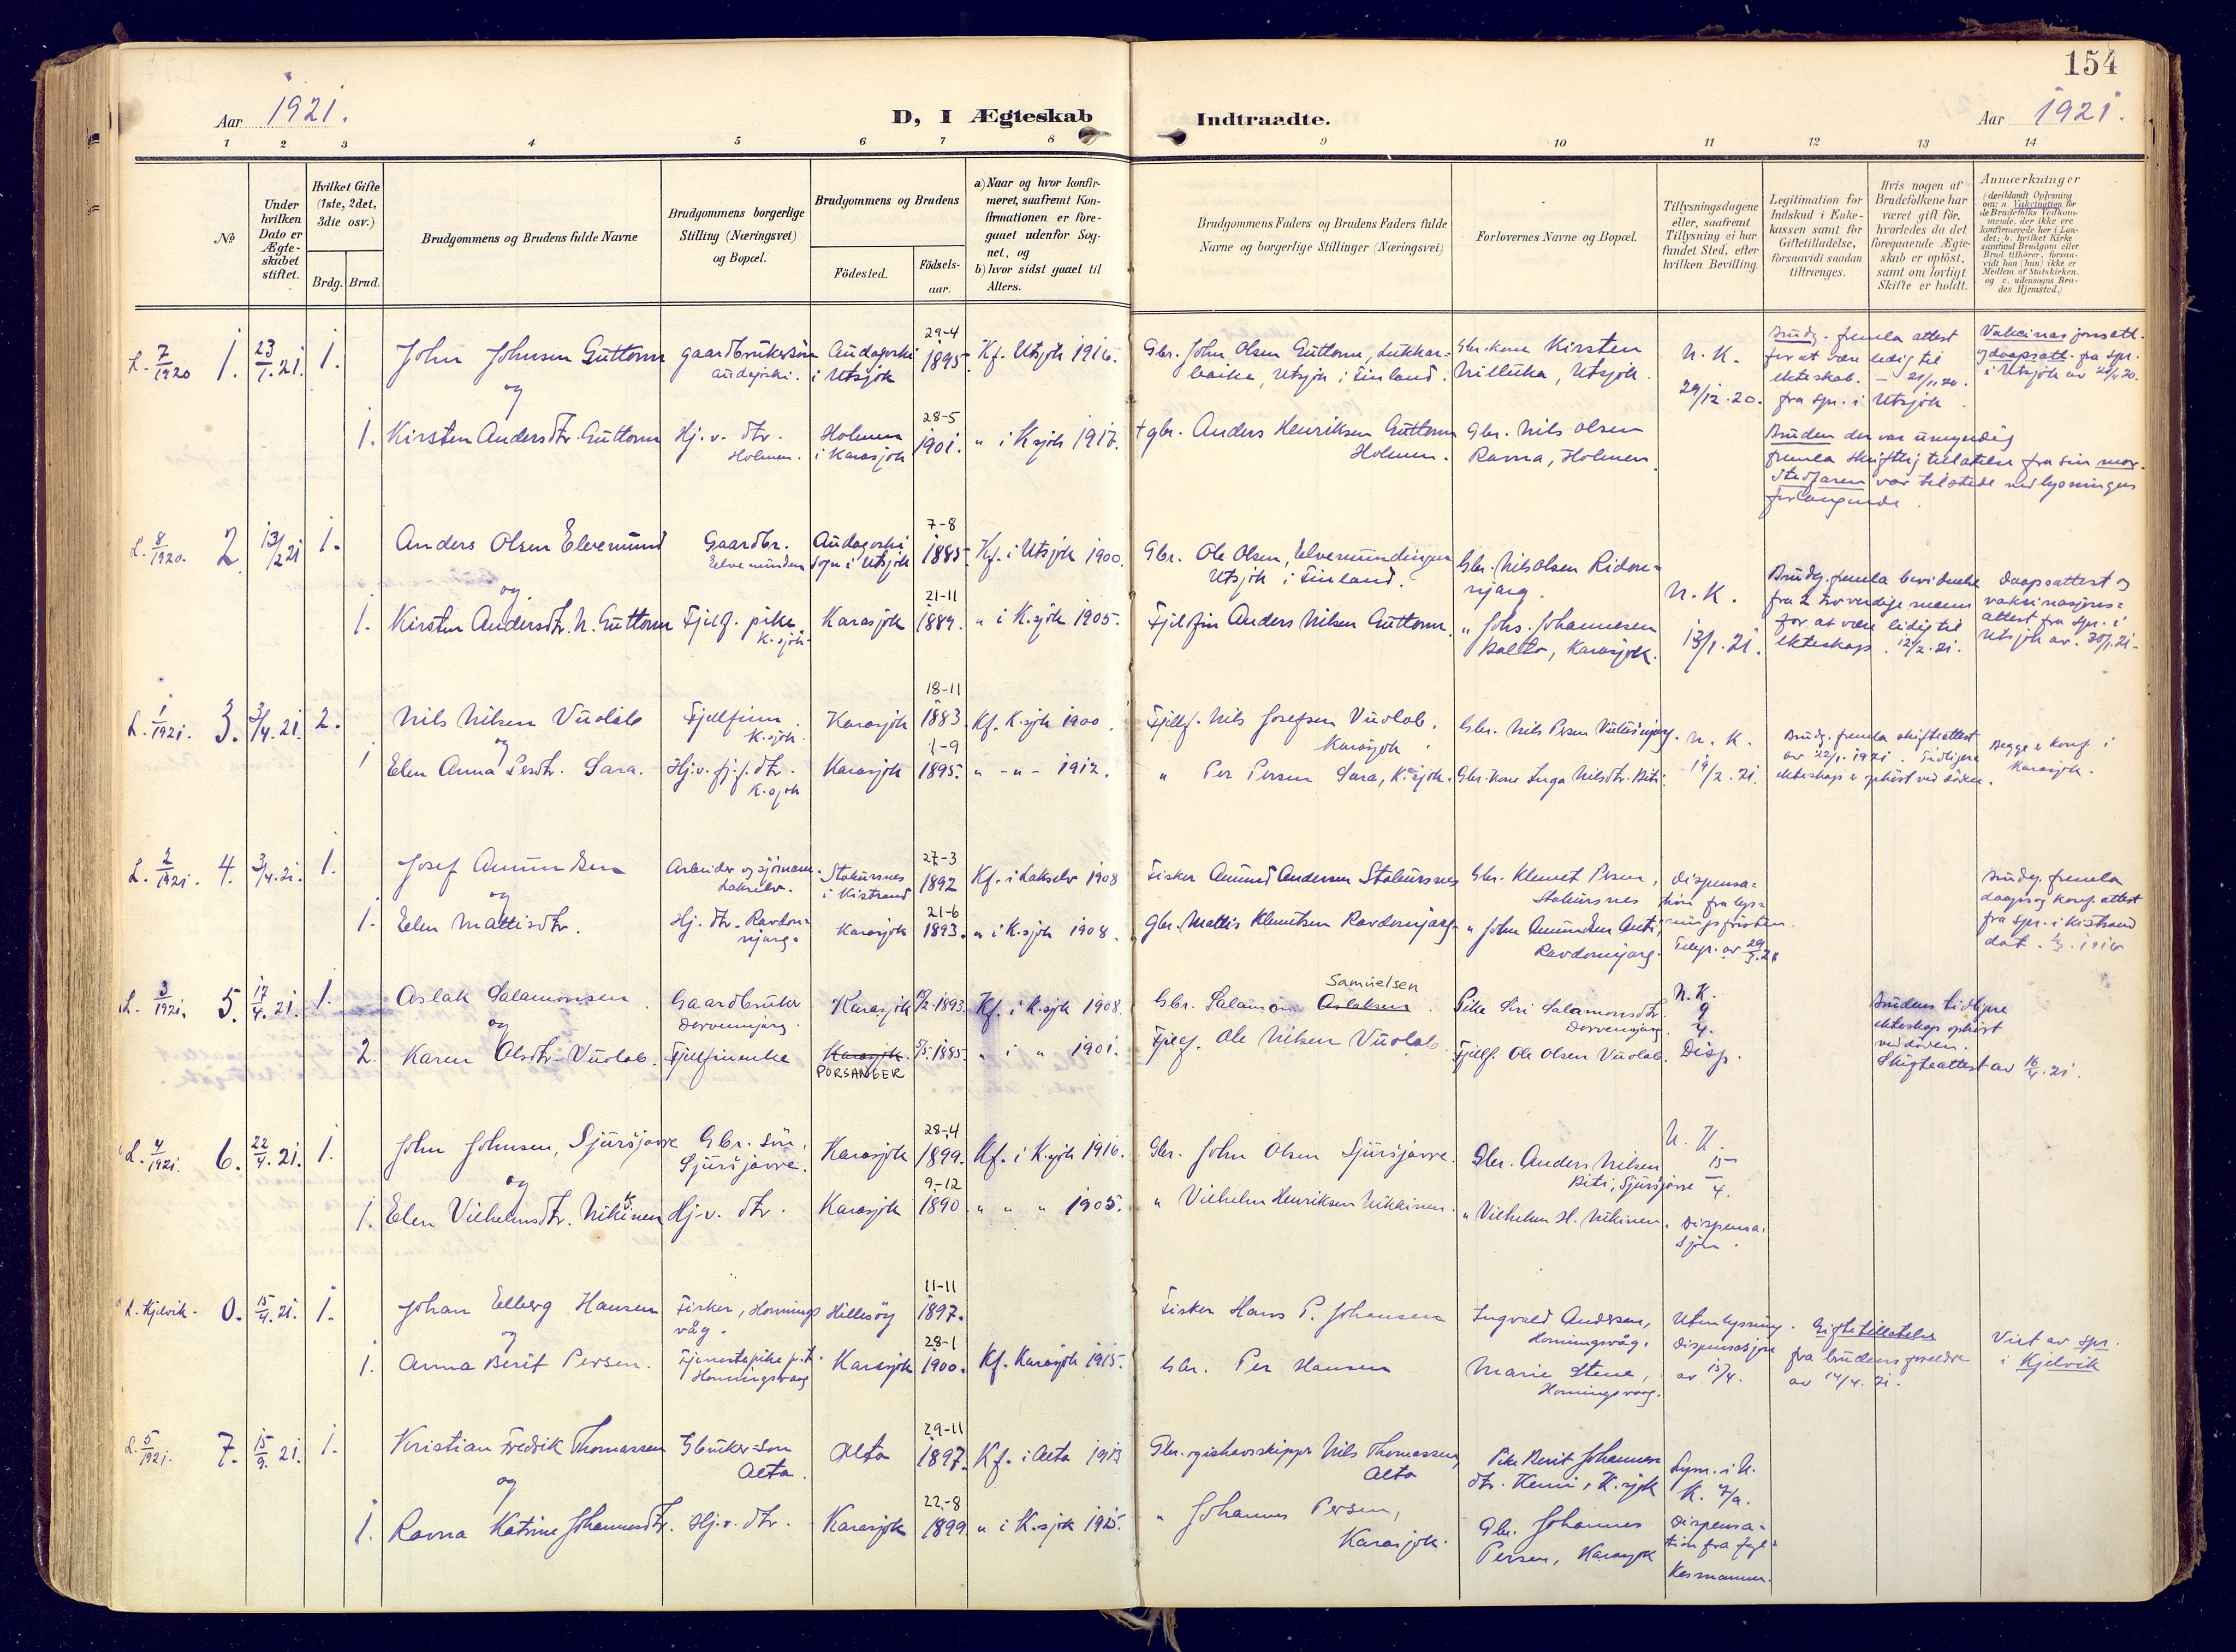 154
Aar 1921.
D, I Ægteskab Indtraadte.
Aar 1921.
1 2 3 4 5 6 7 8 9 10 11 12 13 14
№
Under hvilken Dato er Ægteskabet stiftet.
Hvilket Gifte (1ste, 2det, 3die osv.)
Brdg. Brud.
Brudgommens og Brudens fulde Navne
Brudgommens borgerlige Stilling (Næringsvei) og Bopæl.
Brudgommens og Brudens
Fødested.
Fødselsaar.
a) Naar og hvor konfirmeret, saafremt Konfirmationen er foregaaet udenfor Sognet, og
b) hvor sidst gaaet til Alters.
Brudgommens Faders og Brudens Faders fulde Navne og borgerlige Stillinger (Næringsvei)
Forlovernes Navne og Bopæl.
Tillysningsdagene eller, saafremt Tillysning ei har fundet Sted, efter hvilken Bevilling.
Legitimation for Indskud i Enkekassen samt for Giftetilladelse, forsaavidt saadan tiltrænges.
Hvis nogen af Brudefolkene har været gift før, hvorledes da det foregaaende Ægteskab er opløst, samt om lovligt Skifte er holdt.
Anmærkninger (deriblandt Oplysning om: a. Vakcination for de Brudefolks Vedkommende, der ikke ere konfirmerede her i Landet; b. hvilket Kirkesamfund Brudgom eller Brud tilhører, forsaavidt han (hun) ikke er Medlem af Statskirken. og c. udensogns Brudes Hjemsted.)
L. 7/1920 1. 23/1.21. 1. John Johnsen Guttorm gaardbrukersøn Audagoski 29-4 1895. Kf. Utsjok 1916. Gbr. John Olsen Guttorm, Utsjok i Finland. Gbr. kone Kirsten Utsjok. N. K. 29/12.20.
Audagoski. i Utsjok
Brudg. fremla attest for at være ledig til ekteskab. fra spr. i Utsjok
og daapsatt. fra spr. i Utsjok
og
1. Kirsten Andersdtr. Guttorm Hj. v. dtr. Holmen. Holmen i Karasjok 28-5 1901. " i K.sjok 1917. † gbr. Anders Henriksen Guttorm Holmen. Gbr. Nils Olsen Ravna, Holmen.
Bruden der var umyndig
fremla skriftlig tillatelse fra sin mor.
Stedfaren var tilstede ved lysningens
forlangende.
L. 8/1920. 2 13/2 21 1. Anders Olsen Elvemund Gaardbr. Elvemunden Audagoski sogn i Utsjok 7-8 1885. Kf. i Utsjok 1900. Gbr. Ole Olsen, Elvemundingen Utsjok i Finland. Gbr. Nils Olsen N. K. 13/1.21.
og
1. Kirsten Andersdtr. N. Guttorm Fjelf. pike K.sjok. Karasjok 21-11 1889. " i K.sjok 1905. Fjelfin Anders Nilsen Guttorm. " Johs. Johannesen Balto, Karasjok.
Brudg. fremla bevidnelse
fra 2 troverdige menn
for at være ledig til
ekteskap. 12/2.21.
Daapsattest og
vaksinasjons=
attest fra spr. i
Utsjok av 30/1.21.
L. 1/1921. 3. 3/4.21. 2. Nils Nilsen Vuolab Fjellfinn K.sjok. Karasjok 18-11 1883. Kf. K.sjok 1900. Fjellf. Nils Josefsen Vuolab. Karasjok. Gbr. Nils Persen N. K. 19/2.21.
og
1 Elen Anna Persdtr. Sara. Hj. v. fj. f. dtr. K.sjok Karasjok 1-9 1895. " -"- 1912. " Per Persen Sara, K.sjok. Gbr. kone Inga Nilsdtr. Biti.
Brudg. fremla skifteattest
av 22/1.1921. Tidligere
ekteskap er ophørt ved døden.
Begge er konf. i
Karasjok.
L. 2/1921. 4. 3/4.21. 1. Josef Amundsen Arbeider og sjømann. Lakselv. Stabursnes i Kistrand 27-3 1892 Kf. i Lakselv 1908 Fisker Amund Andersen Stabursnes Gbr. Klemet Persen, Stabursnes
og
1. Elen Mattisdtr. Hj. dtr. Ravdonjarg. Karasjok 21-6 1893. " i K.sjok 1908. Gbr. Mattis Klemetsen Ravdonnjarg " John Amundsen Anti, Ravdonnjarg.
Dispensa=
tion fra lys=
ningsfristen.
Telegr. av 29/3.21
Brudg. fremla
daaps og konf. attest
fra spr. i Kistrand
L. 3/1921. 5. 17/4.21. 1. Aslak Salamonsen. Gaardbruker Dervonnjarg. Karasjok 1893 Kf. i K.sjok 1908. Gbr. Salamon Aslaksen Samuelsen. Pike Siri Salamonsdtr. Dervonnjarg. N. K. 9/4. Disp.
og
2. Karen Olsdtr. Vuolab. Fjelfinnenke Karasjok. PORSANGER 1885. " i " 1901. Fjelf. Ole Nilsen Vuolab. Fjellf. Ole Olsen Vuolab.
Brudens tidligere
ekteskap ophørt
ved døden.
Skifteattest av 16/4.21.
L. 4/1921. 6. 22/4.21. 1. John Johnsen, Sjursjavre Gbr. søn. Sjursjavre. Karasjok 28-4 1899. Kf. i K.sjok 1916. Gbr. John Olsen Sjursjavre. Gbr. Anders Nilsen Biti, Sjursjavre N. K. 15/4.
og
1. Elen Vilhelmsdtr. Nikkinen Hj. v. dtr. Karasjok 9-12 1890 " " " 1905. " Vilhelm Henriksen Nikkinen. " Vilhelm H. Nikinen. Dispensasjon.
L. Kjelvik. 0. 15/4.21. 1. Johan Elberg Hansen Fisker, Honningsvåg. Hillesøy 11-11 1897. Fisker Hans P. Johansen Ingvald Andersen, Honningsvåg. Uten lysning. dispensasjon av 15/4.
og
1. Anna Berit Persen. Tjenestepike p.t. Honningsvaag Karasjok 28-1 1900. Kf. Karasjok 1915. Gbr. Per Hansen Marie Stene, Honningsvaag.
Giftetillatelse
fra brudens foreldre
av 14/4.21.
Viet av spr.
i Kjelvik
L. 5/1921. 7. 15/9.21. 1. Kristian Fredrik Thomassen Gbruker-søn Alta. Alta 29-11 1897. Kf. i Alta 1913 Gbr. og ishavsskipper Nils Thomassen, Alta Pike Berit Johannesdtr. Kemi, K.sjok
og
1. Ravna Katrine Johannesdtr. Hj. v. dtr. Karasjok 22-8 1899. " i K.sjok 1915. " Johannes Persen, Karasjok. Gbr. Johannes Persen, Karasjok
Lysn. i K.
Dispensa=
tion fra fyl=
kesmannen.